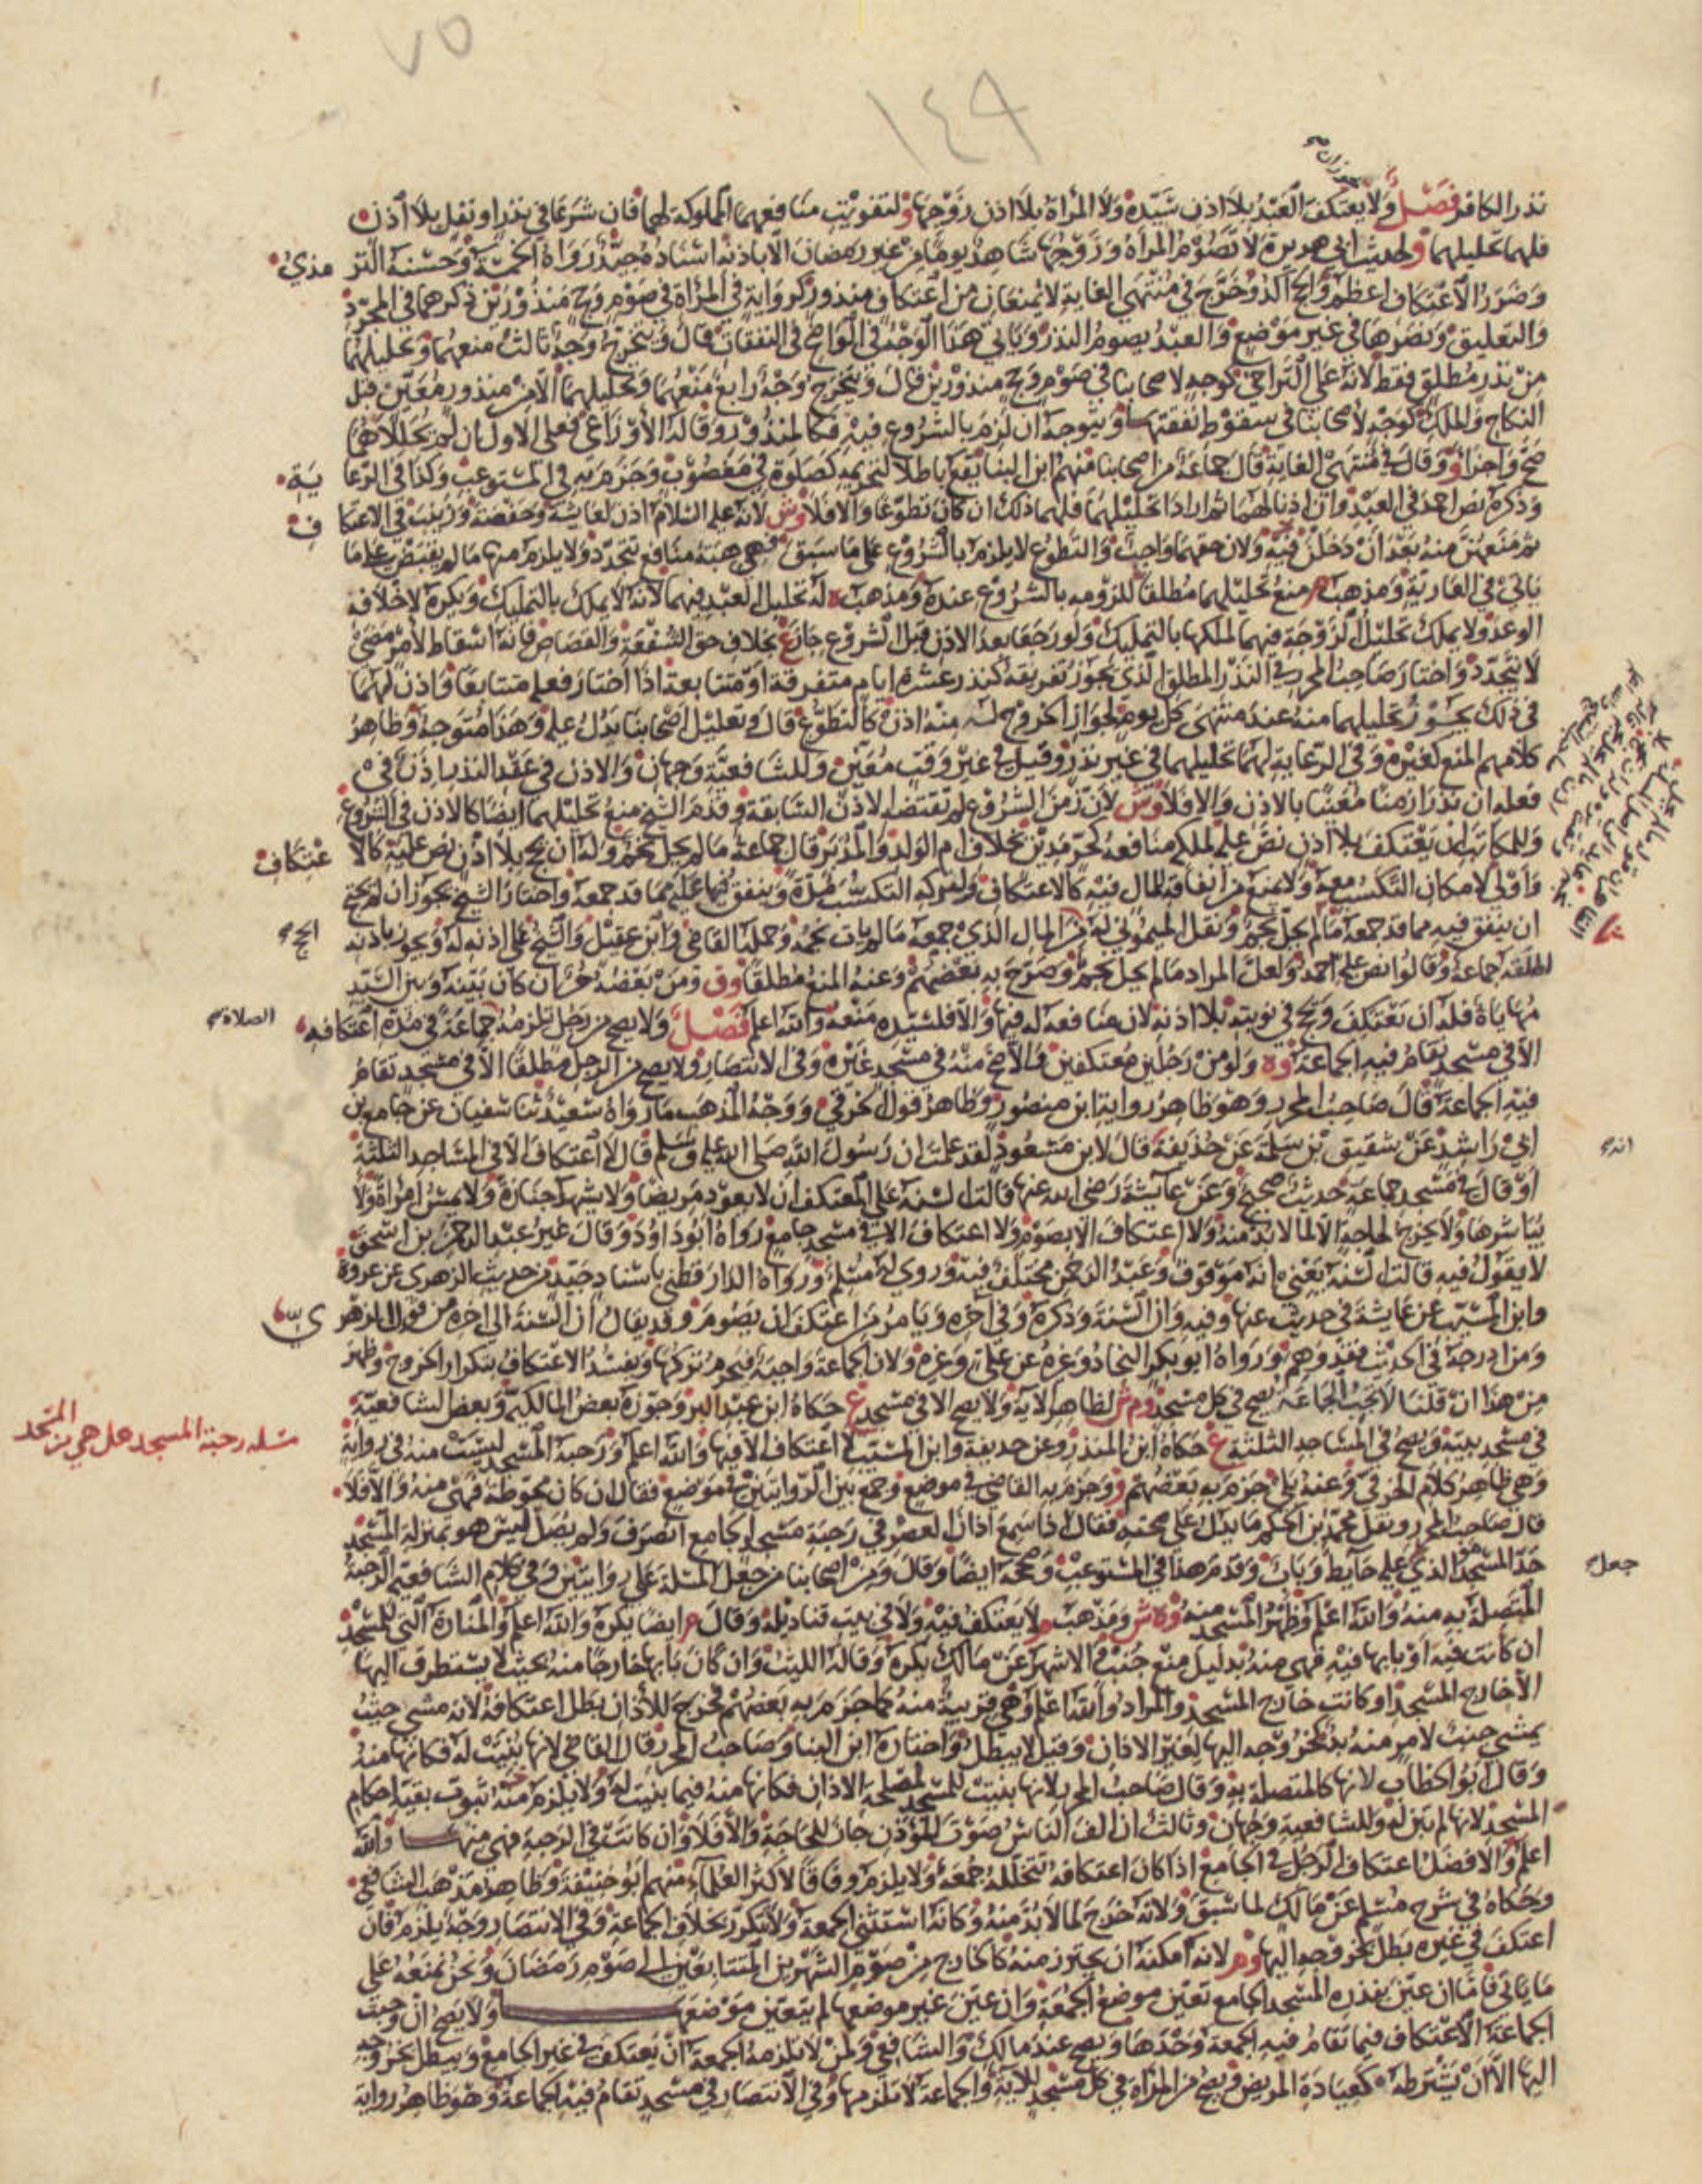 ٧٥
١٤٩
نذر الكافر فصل ولا يعتكف العبد بلا اذن سيده ولا المراة بلا اذن زوجها و لتفويت منافعهما المملوكة لهما فان شرعا في نذر او نفل بلا اذن
فلهما تحليلهما و لحديث ابي هريرة لا تصوم المراة وزوجها شاهد يوما من غير رمضان الا باذنه اسناده جيد رواه الخمسة وحسنه الترمذي
وضرر الاعتكاف اعظم والحج آكد وخرج في منتهى الغاية لا يمنعان من اعتكاف منذور كرواية في المراة في صوم وحج منذورين ذكرهما في المجرد
والتعليق ونصرهما في غير موضع والعبد يصوم النذر وياتي هذا الوجه في الواضح في النفقات قال ويتخرج وجه ثالث منعهما وتحليلهما
من نذر مطلق فقط لانه على التراخي كوجه لاصحابنا في صوم وحج منذورين قال ويتخرج وجه رابع منعهما وتحليلهما الا من منذور معين قبل
النكاح والملك كوجه لاصحابنا في سقوط نفقتها ويتوجه ان لزم بالشروع فيه فكالمنذور وقاله الاوزاعي فعلى الاول ان لم يحللاهما
صح واجزا و وقال في منتهى الغاية قال جماعة من اصحابنا منهم ابن البنا يقع باطلا لتحريمه كصلاة في مغصوب وجزم به في المستوعب وكذا في الرعاية
وذكره نص احمد في العبد وان اذنا لهما ثم ارادا تحليلهما فلهما ذلك ان كان تطوعا والا فلا وش لانه عليه السلام اذن لعايشة وحفصة وزينب في الاعتكاف
ثم منعهن منه بعد ان دخلن فيه ولان حقهما واجب والتطوع لا يلزم بالشروع على ما سبق فهي هبة منافع تتجدد ولا يلزم منها ما لم يقبض على ما
ياتي في العارية ومذهب م منع تحليلهما مطلقا للزومه بالشروع عنده ومذهب ه له تحليل العبد فيهما لانه لا يملك بالتمليك ويكره لاخلافه
الوعد ولا يملك تحليل الزوجة فيهما لملكها بالتمليك ولو رجعا بعد الاذن قبل الشروع جاز ع بخلاف حق الشفعة والقصاص فانه اسقاط لامر مضى
لا يتجدد واختار صاحب المحرر في النذر المطلق الذي يجوز تفريقه كنذر عشرة ايام متفرقة او متتابعة اذا اختار فعله متتابعا واذن لهما
في ذلك يجوز تحليلهما منه عند منتهى كل يوم لجواز الخروج له منه اذن كالتطوع قال وتعليل اصحابنا يدل عليه وهذا متوجه وظاهر
كلامهم المنع كغيره وفي الرعاية لهما تحليلهما في غير نذر وقيل في غير وقت معين وللشافعية وجهان والاذن في عقد النذر اذن في
فعله ان نذرا زمنا معينا بالاذن والا فلا وش لان زمن الشروع لم يقتضه الاذن السابق وقدم الشيخ منع تحليلهما ايضا كالاذن في الشروع
وللمكاتب ان يعتكف بلا اذن نص عليه لملكه منافعه كحر مدين بخلاف ام الولد والمدبر قال جماعة ما لم يحل نجم وله ان يحج بلا اذن نص عليه كالاعتكاف
واولى لامكان التكسب معه ولا يمنع من انفاقه للمال فيه كالاعتكاف ولتركه التكسب مدة وينفق فيها عليه مما قد جمعه واختار الشيخ يجوز ان لم يحتج
ان ينفق فيه مما قد جمعه ما لم يحل نجم ونقل الميموني له الحج من المال الذي جمعه ما لم يات نجمه وحمله القاضي وابن عقيل والشيخ على اذنه له ويجوز باذنه
اطلقه جماعة وقالوا نص عليه احمد ولعل المراد ما لم يحل نجم وصرح به بعضهم وعنه المنع مطلقا وق ومن بعضه حر ان كان بينه وبين السيد
مهاياة فله ان يعتكف ويحج في نوبته بلا اذنه لان منافعه له فيها والا فلسيده منعه والله اعلم فصل ولا يصح من رجل تلزمه الصلاة جماعة في مدة اعتكافه
الا في مسجد تقام فيه الجماعة وه ولو من رجلين معتكفين في الاصح منه في مسجد غيره وفي الانتصار ولا يصح من الرجل مطلقا الا في مسجد تقام
فيه الجماعة قال صاحب المحرر وهو ظاهر رواية ابن منصور وظاهر قول الخرقي و ووجه المذهب ما رواه سعيد ثنا سفيان عن جامع بن
ابي راشد عن شقيق بن سلمة عن حذيفة انه قال لابن مسعود لقد علمت ان رسول الله صلى الله عليه وسلم قال لا اعتكاف الا في المساجد الثلثة
او قال في مسجد جماعة حديث صحيح وعن عايشة رضي الله عنها قالت السنة على المعتكف ان لا يعود مريضا ولا يشهد جنازة ولا يمس امراة ولا
يباشرها ولا يخرج لحاجة الا لما لا بد منه ولا اعتكاف الا بصوم ولا اعتكاف الا في مسجد جامع رواه ابو داود وقال غير عبد الرحمن بن اسحق
لا يقول فيه قالت السنة يعني انه موقوف وعبد الرحمن مختلف فيه وروى له مسلم ورواه الدارقطني باسناد جيد من حديث الزهري عن عروة
وابن المسيب عن عايشة في حديث عنها وفيه وان السنة وذكره وفي اخره ويامر من اعتكف ان يصوم وقد يقال ان السنة الى اخره من قول الزهري
ومن ادرجه في الحديث فقد وهم ورواه ابو بكر النجاد وغيره عن علي وغيره ولان الجماعة واجبة فيحرم تركها ويفسد الاعتكاف بتكرار الخروج وظهر
من هذا ان قلنا لا تجب الجماعة يصح في كل مسجد وم ش لظاهر الاية ولا يصح الا في مسجد ع حكاه ابن عبد البر وجوزه بعض المالكية وبعض الشافعية
في مسجد بيته ويصح في المساجد الثلثة ع حكاه ابن المنذر وعن حذيفة وابن المسيب لا اعتكاف الا فيها والله اعلم ورحبة المسجد ليست منه في رواية
وهي ظاهر كلام الخرقي وعنه بلى جزم به بعضهم و وجزم به القاضي في موضع وجمع بين الروايتين في موضع فقال ان كان محوطة فهي منه والا فلا
قال صاحب المحرر ونقل محمد بن الحكم ما يدل على صحته فقال اذا سمع اذان العصر في رحبة مسجد الجامع انصرف ولم يصل ليس هو بمنزلة المسجد
حد المسجد هو الذي جعل عليه حايط وباب وقدم هذا في المستوعب وصححه ايضا وقال ومن اصحابنا من جعل المسئلة على روايتين وفي كلام الشافعية الرحبة
المتصلة به منه والله اعلم وظهر المسجد منه و ه ش ومذهب م لا يعتكف فيه ولا في بيت قناديله وقال م ايضا يكره والله اعلم والمنارة التي للمسجد
ان كانت فيه او بابها فيه فهي منه بدليل منع جنب في الاشهر عن مالك يكره وقاله الليث وان كان بابها خارجا منه بحيث لا يستطرق اليها
الا خارج المسجد او كانت خارج المسجد والمراد والله اعلم وهي قريبة منه كما جزم به بعضهم فخرج للاذان بطل اعتكافه لانه مشى حيث
يمشي جنب لامر منه بد كخروجه اليها لغير الاذان وقيل لا يبطل واختاره ابن البنا وصاحب المحرر قال القاضي لانها بنيت له فكانها منه
وقال ابو الخطاب لانها كالمتصلة به وقال صاحب المحرر لانها بنيت للمسجد لمصلحة الاذان فكانها منه فيما بنيت له ولا يلزم منه ثبوت بقية احكام
المسجد لانها لم تبن له وللشافعية وجهان وثالث ان الف الناس صوت المؤذن جاز للحاجة والا فلا وان كانت في الرحبة فهي منها والله
اعلم والافضل اعتكاف الرجل في الجامع اذا كان اعتكافه تتخلله جمعة ولا يلزم وفاقا لاكثر العلماء منهم ابو حنيفة وظاهر مذهب الشافعي
وحكاه في شرح مسلم عن مالك لما سبق ولانه خرج لما لا بد منه وكانه استثنى الجمعة ولا تتكرر بخلاف الجماعة وفي الانتصار وجه يلزم فان
اعتكف في غيره بطل بخروجه اليها وم ر لانه امكنه ان يحترز منه كالخارج من صوم الشهرين المتتابعين الى صوم رمضان ونحن نمنعه على
ما ياتي فاما ان عين بنذره المسجد الجامع تعين موضع الجمعة وان عين غير موضعها لم يتعين موضعها ولا يصح ان وجبت
الجماعة الاعتكاف فيما تقام فيه الجمعة وحدها ويصح عند مالك والشافعي ولمن لا تلزمه الجمعة ان يعتكف في غير الجامع ويبطل بخروجه
اليها الا ان يشترطه كعيادة المريض ويصح من المراة في كل مسجد للاية والجماعة لا تلزمها وفي الانتصار في مسجد تقام فيه الجماعة وهو ظاهر رواية
مسئلة رحبة المسجد هل هي من المسجد